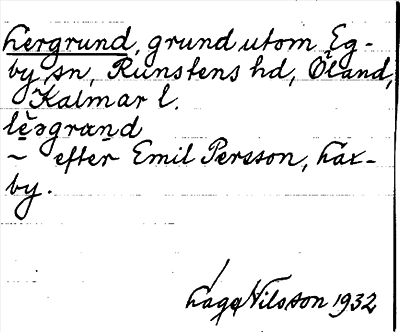 Lergrund, grund utom Eg-
by sn, Runstens hd, Öland,
Kalmar l.
lẹəgrạṇd
~ efter Emil Persson, Lax-
by.
Lage Nilsson 1932